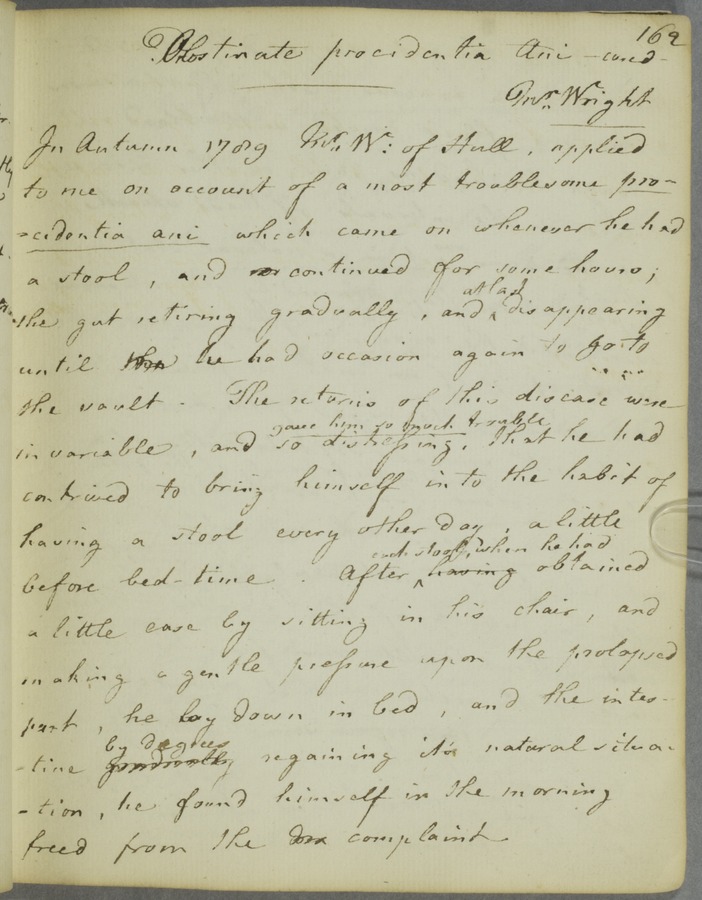 162
Obstinate procidentia Ani - cured -
Mr. Wright
In Autumn 1789 Mr. W: of Hull, applied
to me on account of a most troublesome pro-
-cidentia ani which came on whenever he had
a stool, and continued for some hours;
the gut retiring gradually, and at last disappearing
until he had occasion again to go to
the vault. The returns of this disease were
invariable, and
gave him so much trouble
so distressing, that he had
contrived to bring himself into the habit of
having a stool every other day, a little
each stool, when he had
before bed-time. After having obtained
a little ease by sitting in his chair, and
making a gentle pressure upon the prolapsed
part, he lay down in bed, and the intes-
by degrees
-tine gradually regaining its natural situa-
-tion, he found himself in the morning
freed from the complaint